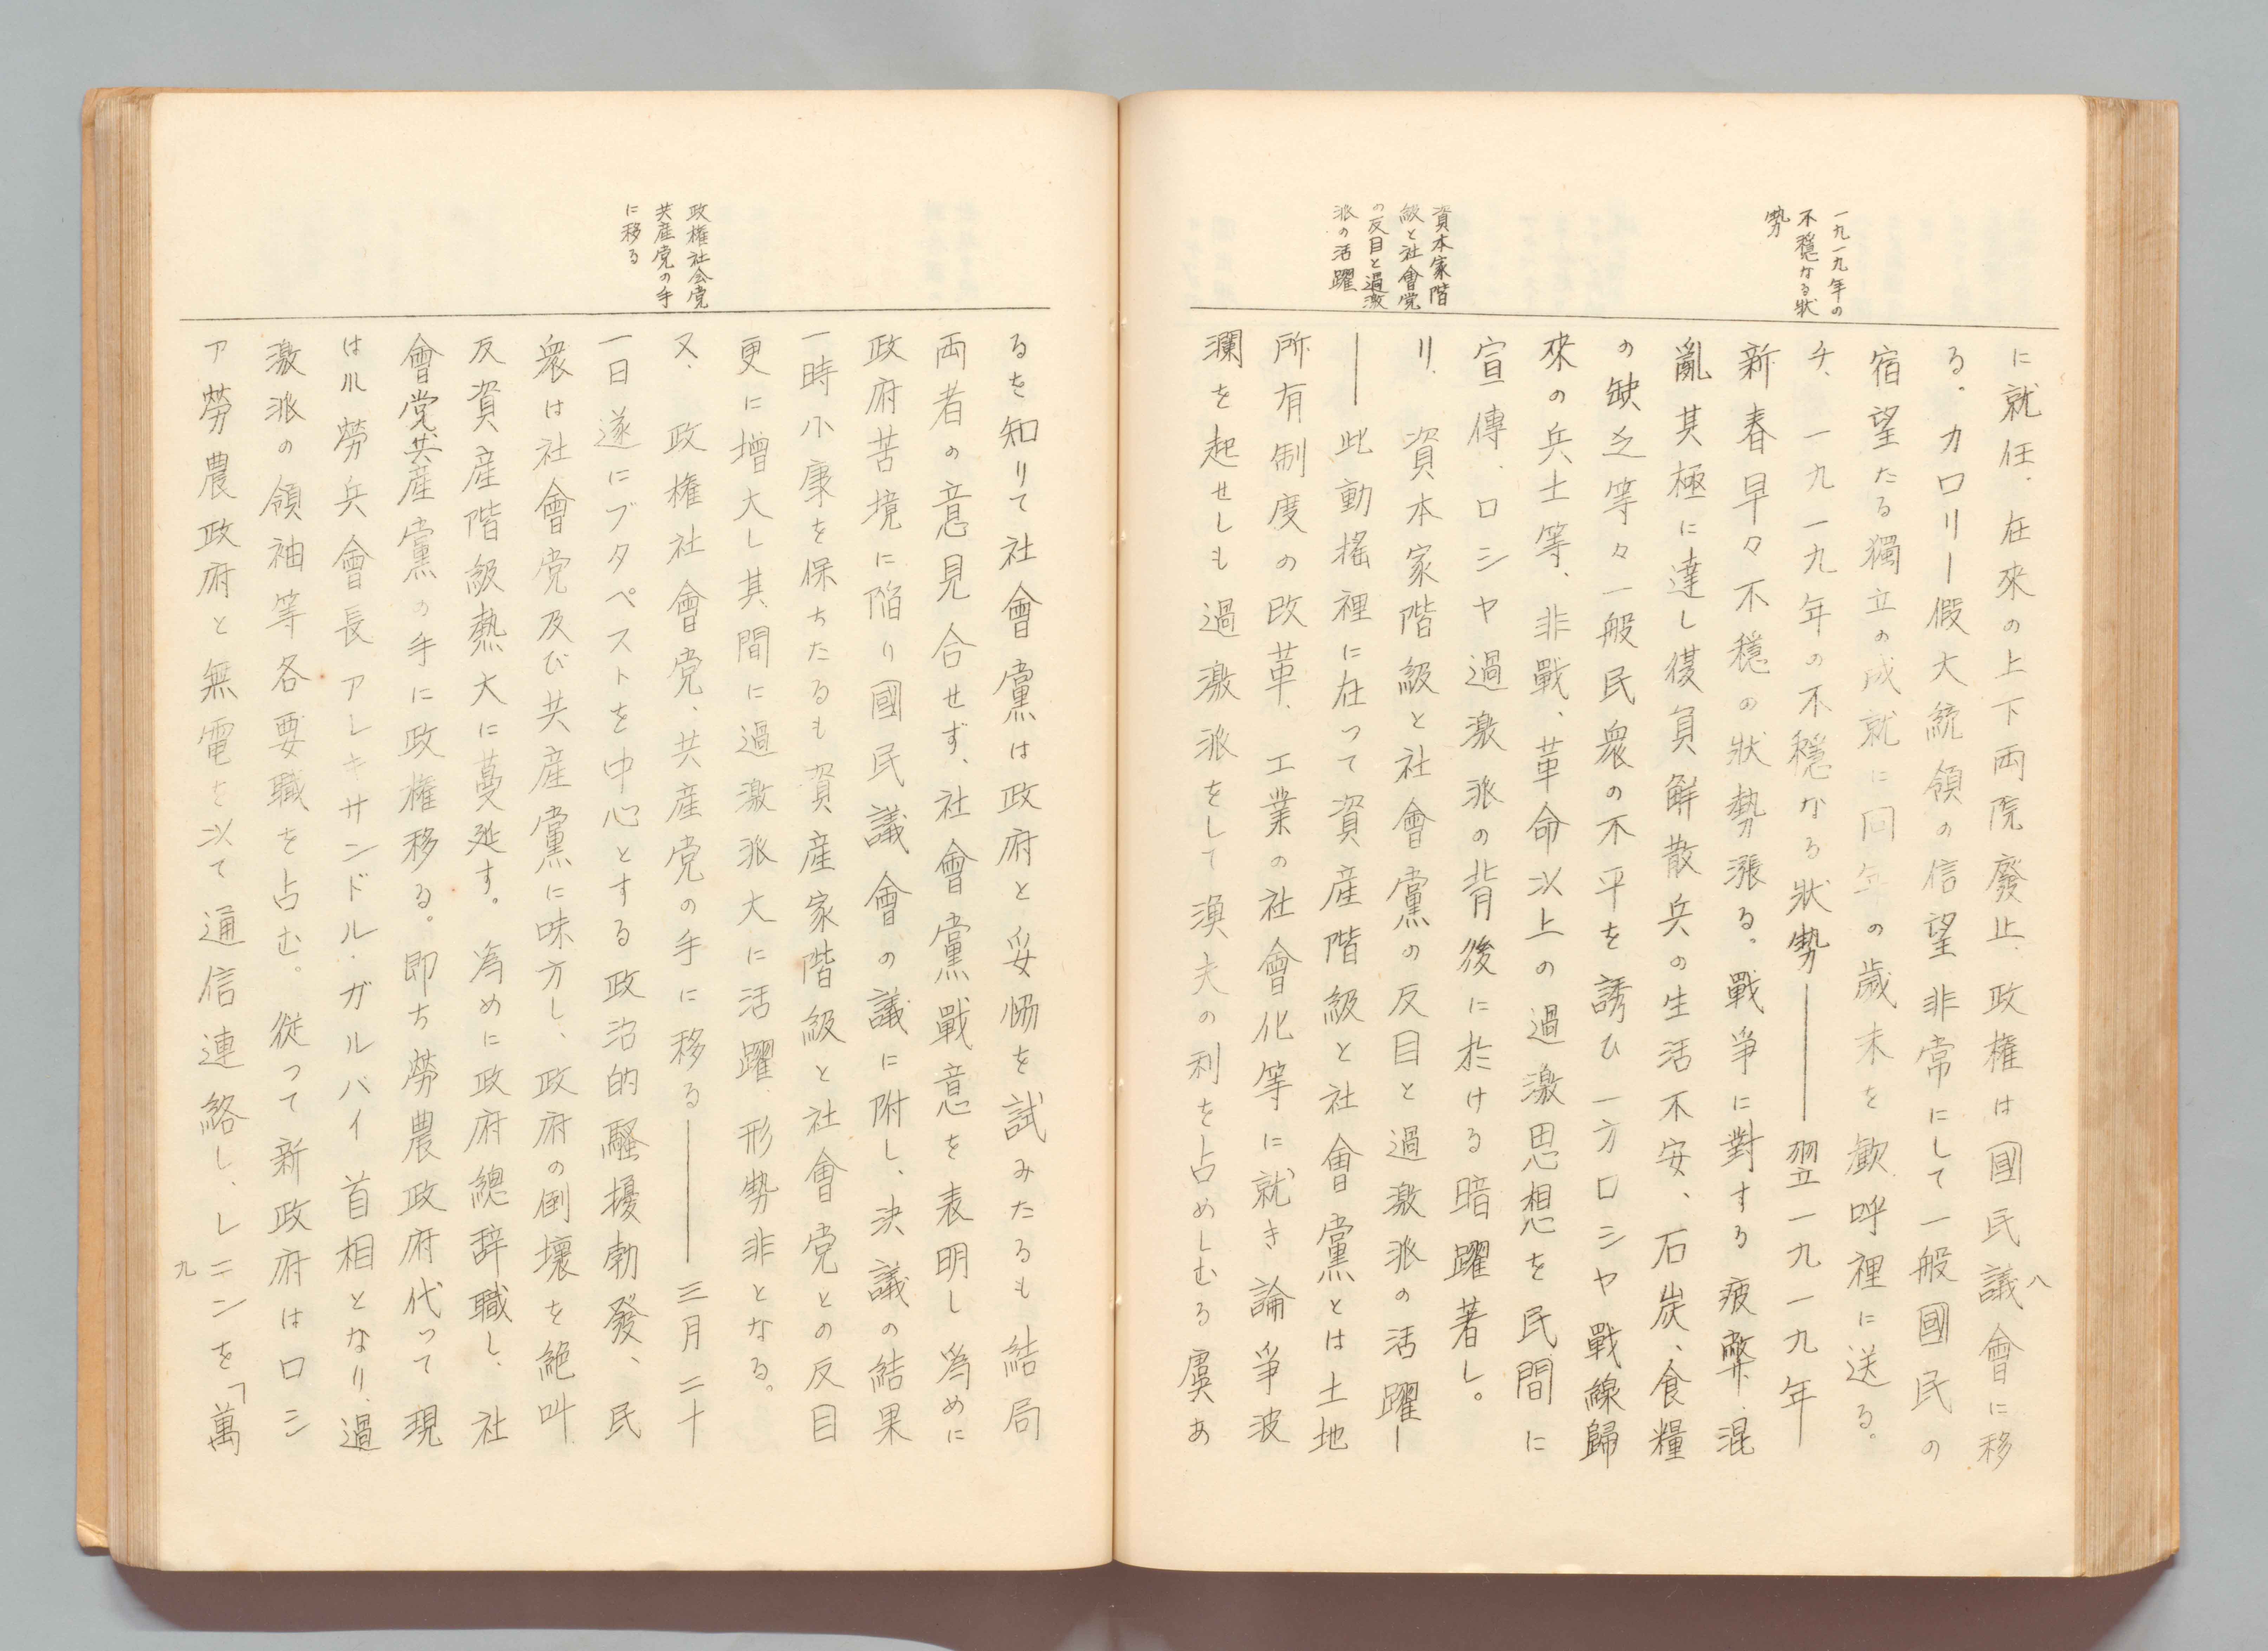 一九一九年の
不穏なる状
勢
資本家階
級と社會党
の反目と過激
派の活躍
に就任、在來の上下両院廢止、政権は國民議會に移
る。カロリー假大統領の信望非常にして一般國民の
宿望たる獨立の成就に同年の歳末を歓呼裡に送る。
チ、一九一九年の不穏なる狀勢――翌一九一九年
新春早々不穏の狀勢漲る。戰爭に對する疲弊、混
亂其極に達し復員解散兵の生活不安、石炭、食糧
の缺乏等々一般民衆の不平を誘ひ一方ロシヤ戰線歸
來の兵士等、非戰、革命以上の過激思想を民間に
宣傳、ロシヤ過激派の背後に於ける暗躍著し。
リ、資本家階級と社會黨の反目と過激派の活躍―
―此動搖裡に在って資産階級と社會黨とは土地
所有制度の改革、工業の社會化等に就き論爭波
瀾を起せしも過激派をして漁夫の利を占めしむる虞あ
八
政権社会党
共産党の手
に移る
るを知りて社會黨は政府と妥協を試みたるも結局
両者の意見合せず、社會黨戰意を表明し為めに
政府苦境に陥り國民議會の議に附し、決議の結果
一時小康を保ちたるも資産家階級と社會党との反目
更に増大し其間に過激派大に活躍、形勢非となる。
ヌ、政権社會党、共産党の手に移る――三月二十
一日遂にブタペストを中心とする政治的騒擾勃發、民
衆は社會党及び共産黨に味方し、政府の倒壞を絶叫
反資産階級熱大に蔓延す。為めに政府總辞職し、社
會党共産黨の手に政権移る。即ち勞農政府代って現
はル勞兵會長アレキサンドル・ガルバイ首相となり、過
激派の領袖等各要職を占む。従って新政府はロシ
ア勞農政府と無電を以て通信連絡し、レニンを「萬
九